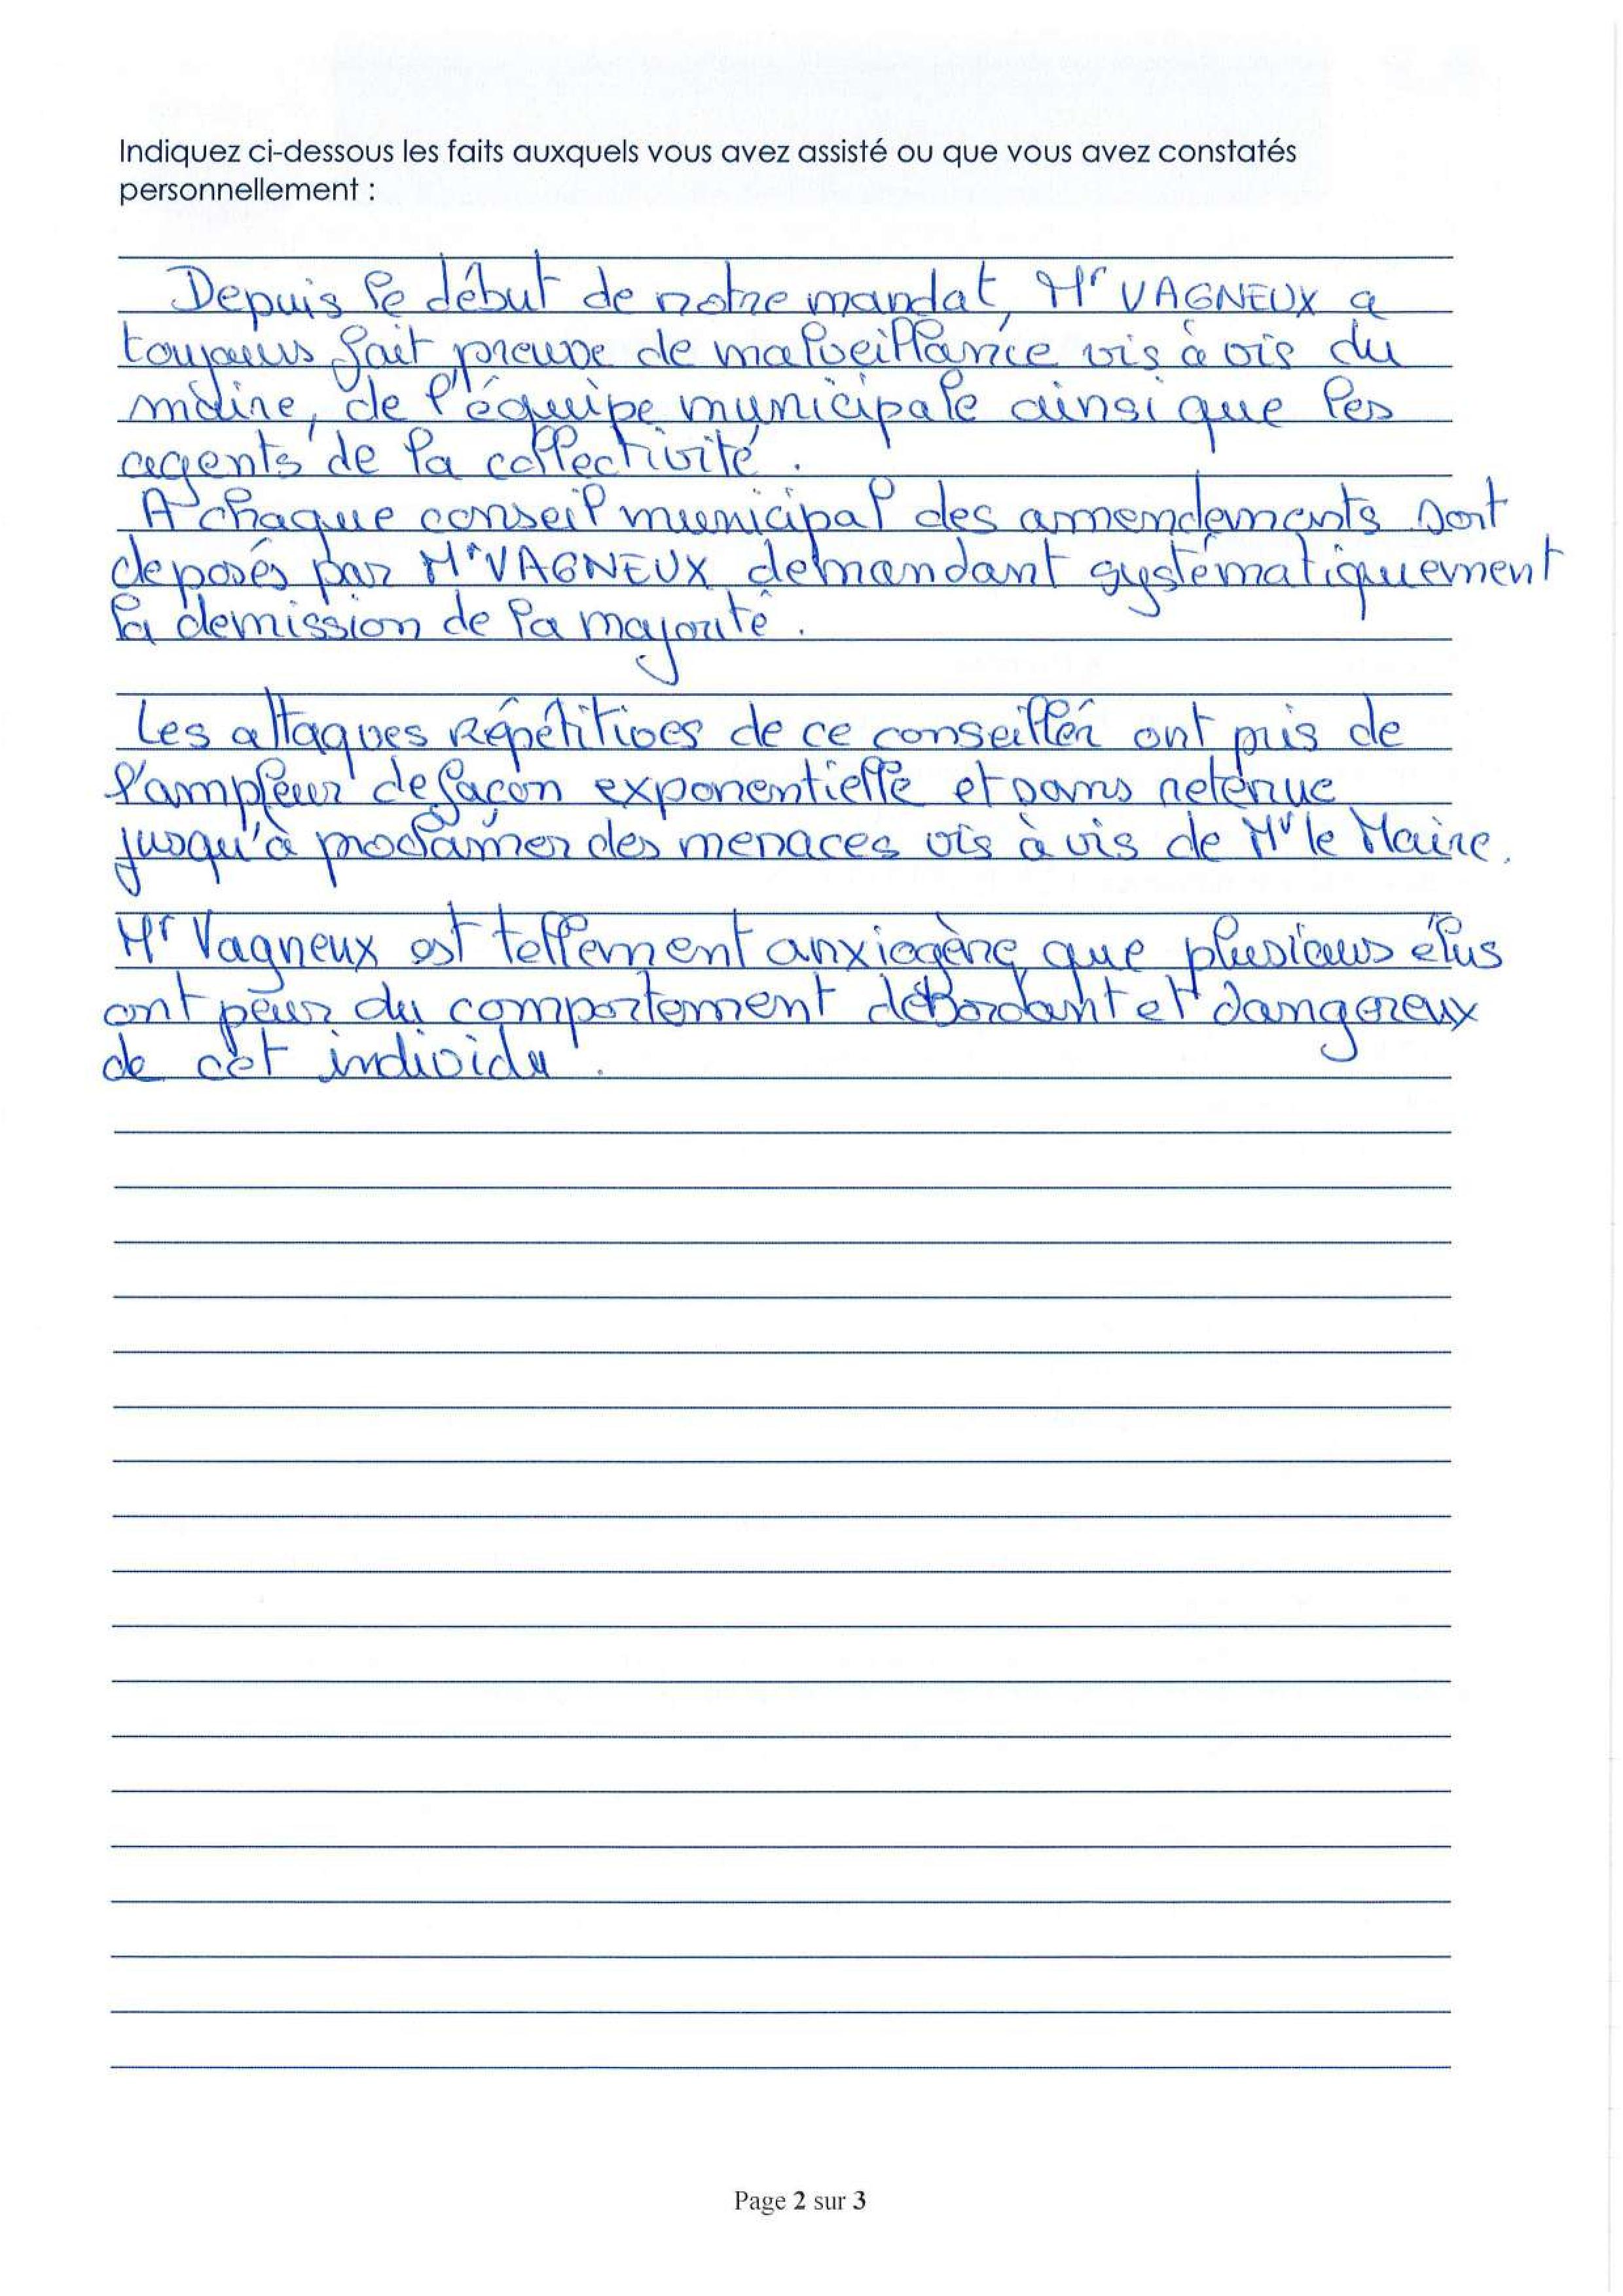 Indiquez ci-dessous les faits auxquels vous avez assisté ou que vous avez constatés
personnellement :
Depuis le début de notre mandat, Mr VAGNEUX a
toujours fait preuve de malveillance vis à vis du
maire, de l'équipe municipale ainsi que les
agents de la collectivité.
A chaque conseil municipal des amendements sont
deposés par Mr VAGNEUX demandant systématiquement
la demission de la majorité.
Les attaques répétitives de ce conseiller ont pris de
l'ampleur de façon exponentielle et sans retenue
jusqu'à proclamer des menaces vis à vis de Mr le Maire.
Mr Vagneux est tellement anxiogène que plusieurs élus
ont peur du comportement débordant et dangereux
de cet individu.
Page 2 sur 3